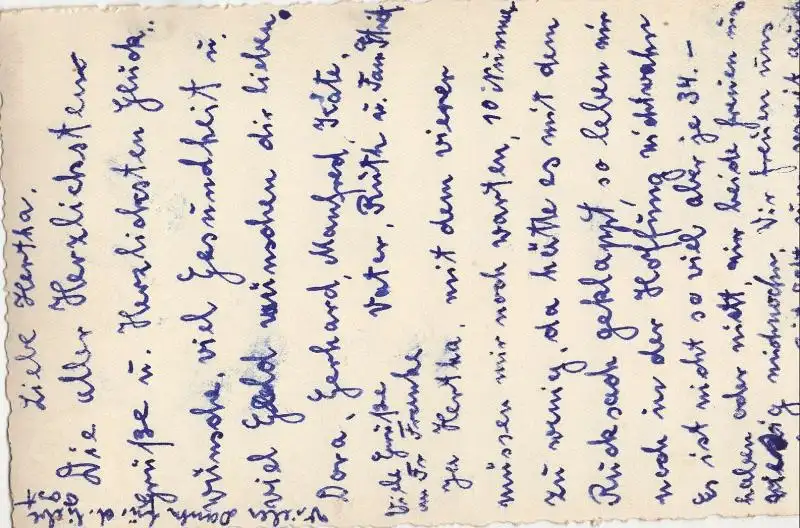 Liebe Hertha.
Die aller Herzlichsten
Grüße u. Herzlichsten Glück..
wünsche, viel Gesundheit u.
viel Geld wünschen dir lieben.
Dora, Gerhard, Manfred, Käte,
Vater, Ruth u. Fam
Viele Grüße
an Fr Franke
Ja Hertha, mit dem vierer
müssen mir noch warten, 10 Nummer
zu wenig, da hätte es mit dem
Rucksack geklappt, so leben mir
noch in der Hoffnung nichtwahr
Es ist nicht so viel aber je 34.-
haben oder nicht, mir beide freuen uns
mir freuen uns
Vielen Dank